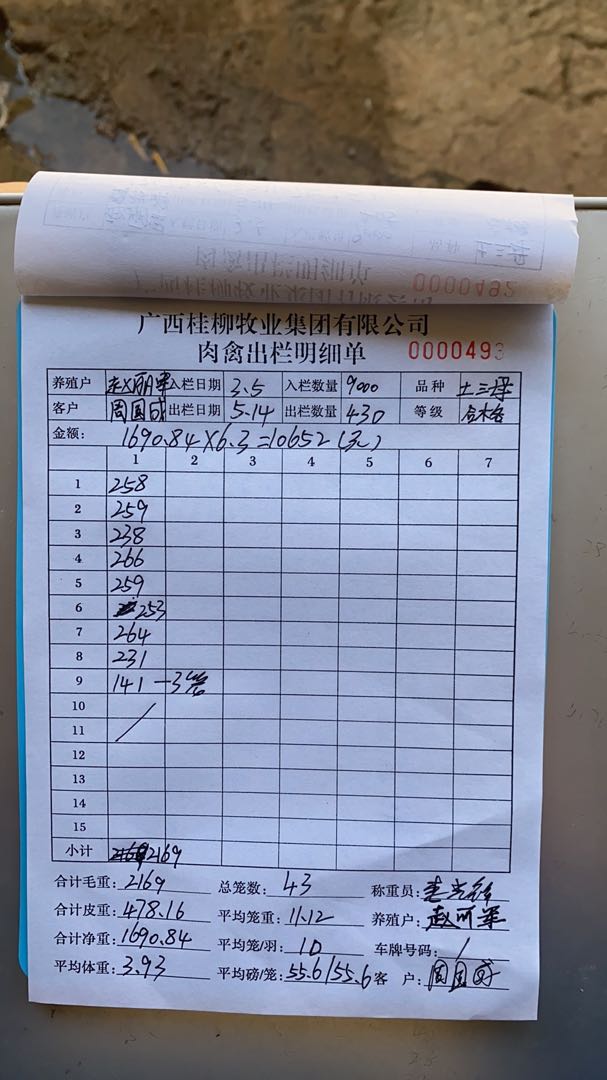 0000492
广西桂柳牧业集团有限公司
肉禽出栏明细单 0000493
养殖户 赵丽军 入栏日期 3.5 入栏数量 9000 品种 土三
客户 周国成 出栏日期 5.14 出栏数量 430 等级 合格
金额: 1690.84×6.3=10652(元)
1 2 3 4 5 6 7
1 258
2 259
3 238
4 266
5 259
6 253
7 264
8 231
9 141 —3笼
10
11
12
13
14
15
小计 2169
合计毛重: 2169 总笼数: 43 称重员:
合计皮重: 478.16 平均笼重: 11.12 养殖户: 赵丽军
合计净重: 1690.84 平均笼/羽: 10 车牌号码: /
平均体重: 3.93 平均磅/笼: 55.6/55.6 客 户: 周国成